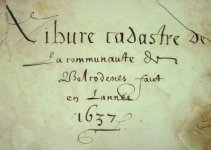 Libure cadastre de
La communaute de
Belrodenes faict
en Lannee
1637